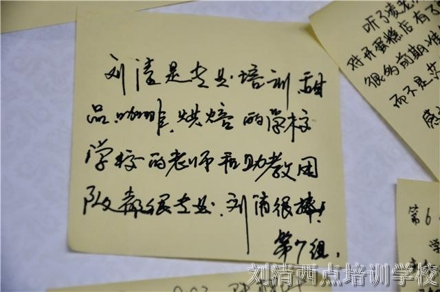 刘清是专业培训甜
品.咖啡,烘焙的学校
学校的老师和助教团
队都很专业.刘清很棒!
第7组.
听了麦
对开蛋糕店有了
很多前期准
而不是
感
第6.
刘清西点培训学校